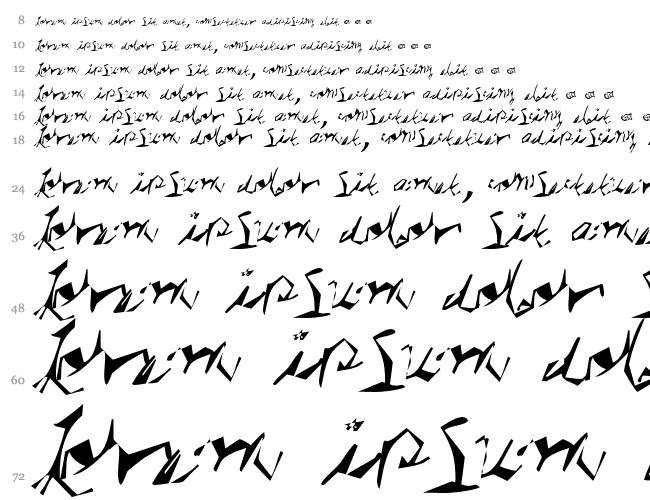 8 Lorem ipSum dolor Sit amet, conSectetuer adipiScing elit
10 Lorem ipSum dolor Sit amet, conSectetuer adipiScing elit
12 Lorem ipSum dolor Sit amet, conSectetuer adipiScing elit
14 Lorem ipSum dolor Sit amet, conSectetuer adipiScing elit
16 Lorem ipSum dolor Sit amet, conSectetuer adipiScing elit
18 Lorem ipSum dolor Sit amet, conSectetuer adipiScing
24 Lorem ipSum dolor Sit amet, conSectetuer
36 Lorem ipSum dolor Sit ame
48 Lorem ipSum dolor S
60 Lorem ipSum dol
72 Lorem ipSum